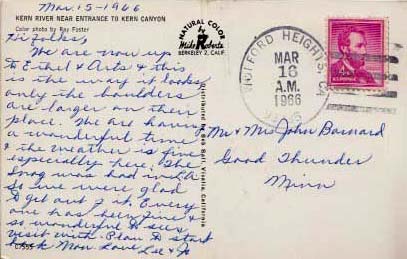 Mar. 15-1966
KERN RIVER NEAR ENTRANCE TO KERN CANYON
Color photo by Ray Foster
Hi folks,
We are now up
to Ethel & Arts & this
is the way it looks
only the boulders
are larger on their
place. We are having
a wonderful time
& the weather is fine
especially here. The
Smog was bad in L.A.
So we were glad
to get out of it. Every
one has been fine &
so wonderful to see &
visit with. Plan to start
back Mon. Love Lee & Jo
C7555
NATURAL COLOR
Mike Roberts
BERKELEY 2, CALIF.
Distributed by Bob Bell, Visalia, California
WOFFORD HEIGHTS, CA
MAR
16
A.M.
1966
4¢
Mr & Mrs John Barnard
Good Thunder
Minn